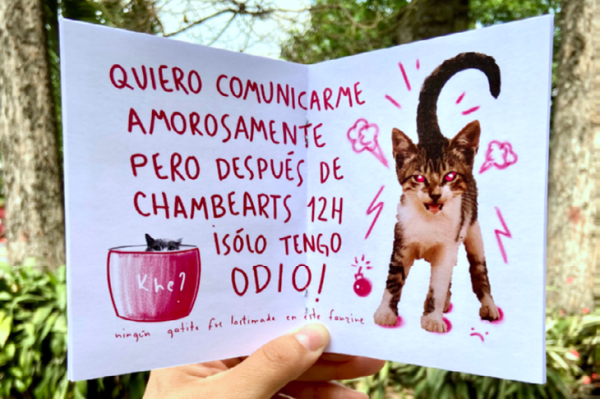 QUIERO COMUNICARME
AMOROSAMENTE
PERO DESPUÉS DE
CHAMBEARTS 12H
¡SÓLO TENGO
ODIO!
Khe?
ningún gatito fue lastimado en este fanzine